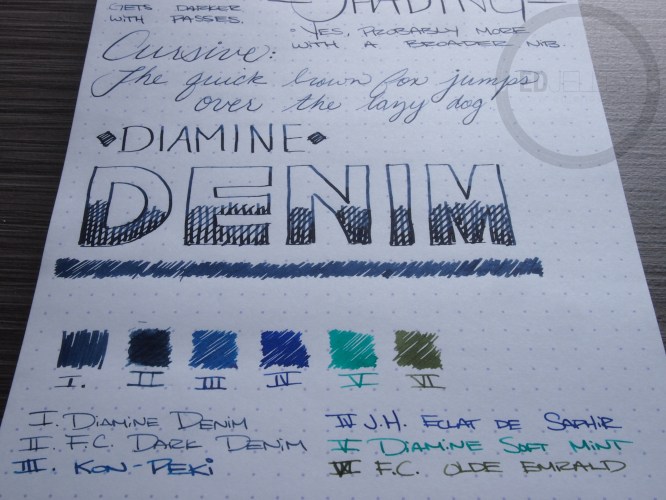 GETS DARKER
WITH PASSES.
SHADING
• YES, PROBABLY MORE
WITH A BROADER NIB.
Cursive:
The quick brown fox jumps
over the lazy dog
DIAMINE
DENIM
I. II III IV V VI
I. DIAMINE DENIM
II F.C. DARK DENIM
III. KON-PEKI
IV J.H. ECLAT DE SAPHIR
V DIAMINE SOFT MINT
VI F.C. OLDE EMRALD